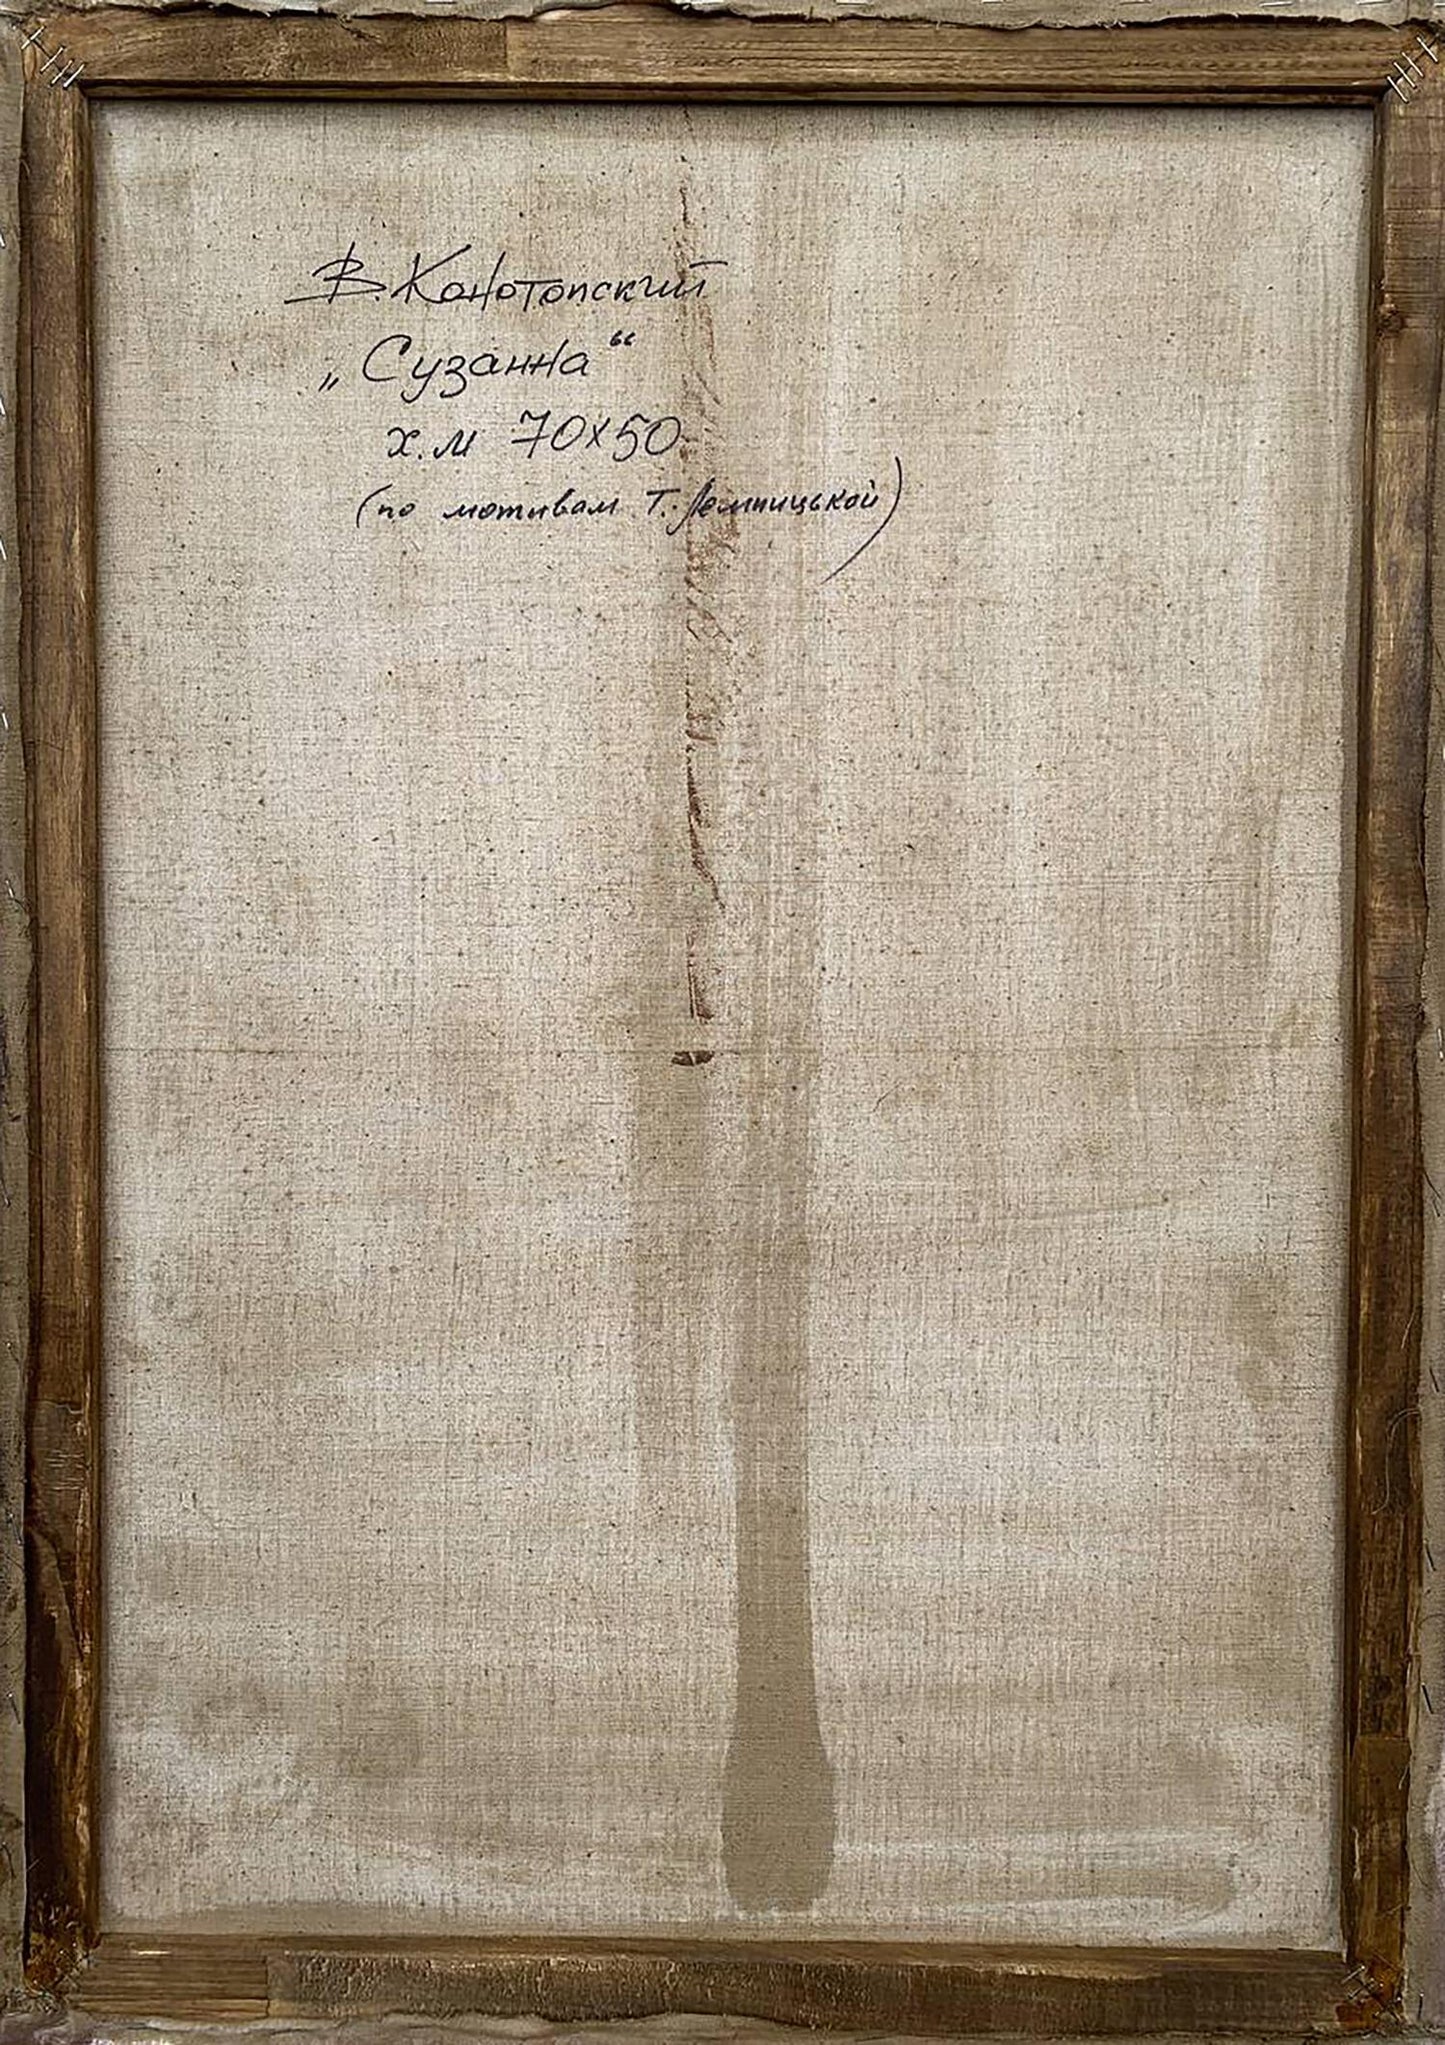 В. Конотопский
„Сузанна“
х.м 70х50
(по мотивам Т. Лемпицькой)